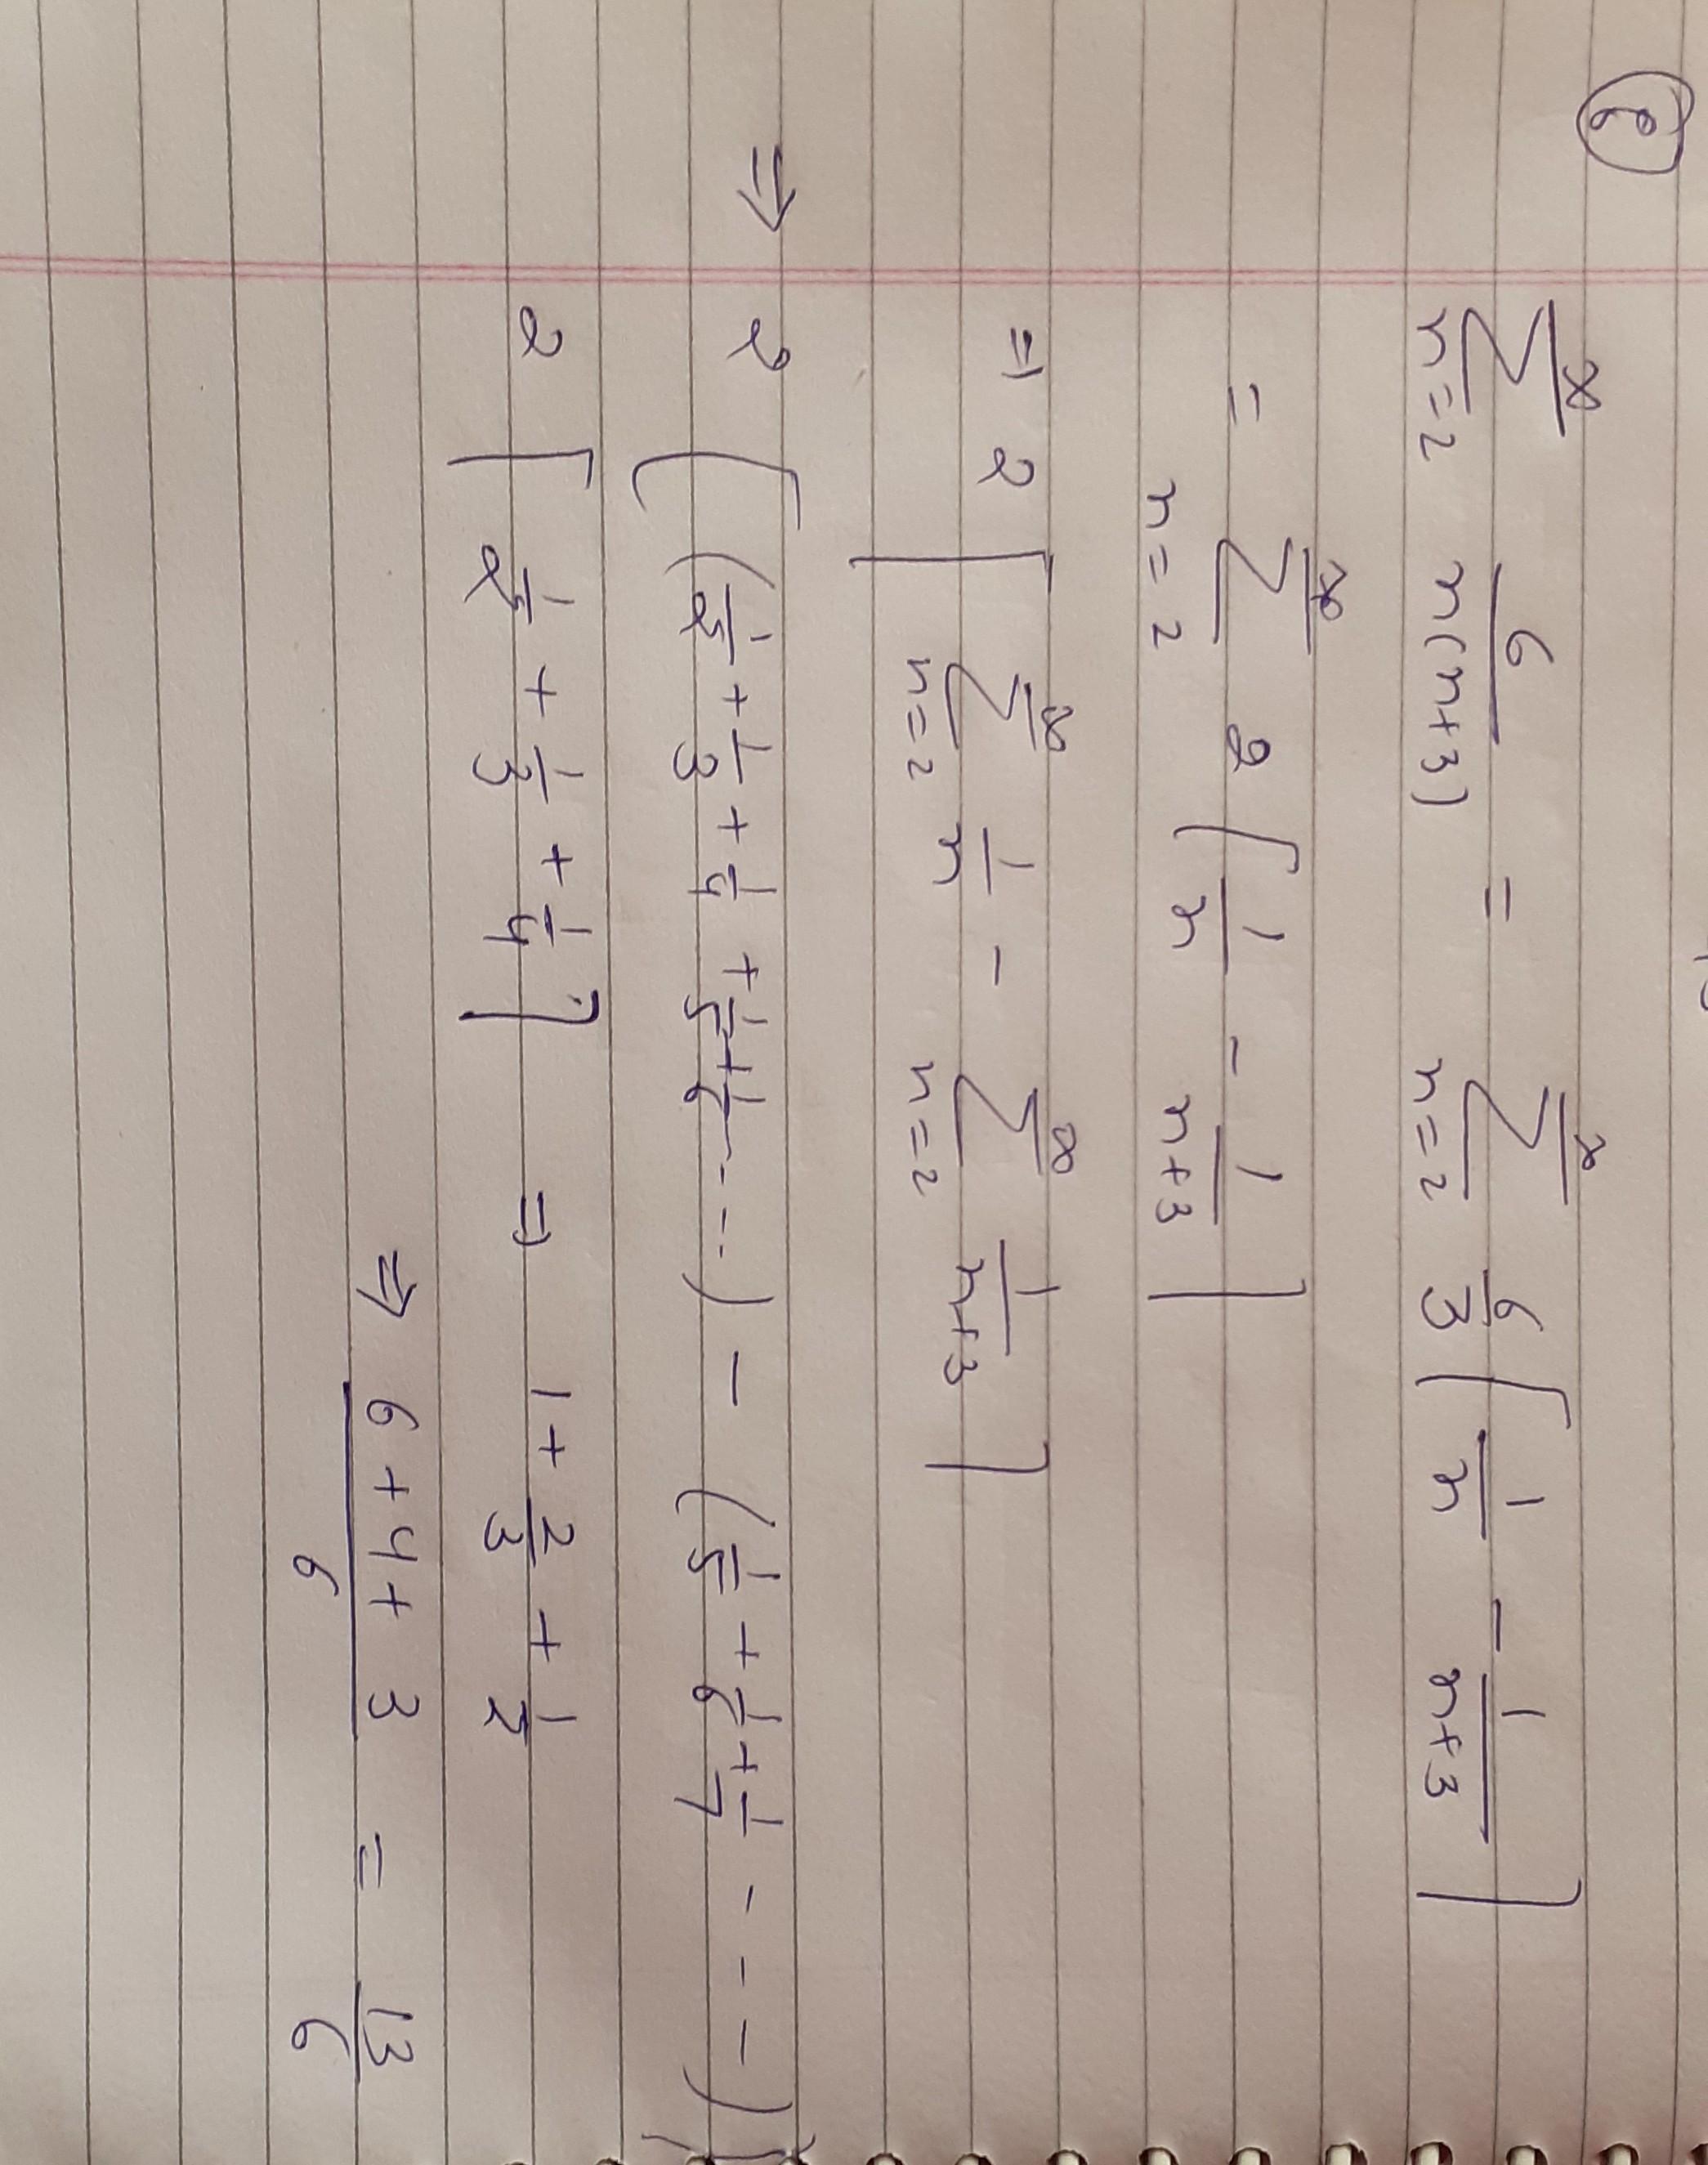 (e) ∑_{n=2}^{∞} 6/(n(n+3)) = ∑_{n=2}^{∞} 6/3 [1/n - 1/(n+3)]
= ∑_{n=2}^{∞} 2 [1/n - 1/(n+3)]
⇒ 2 [∑_{n=2}^{∞} 1/n - ∑_{n=2}^{∞} 1/(n+3)]
⇒ 2 [(1/2 + 1/3 + 1/4 + 1/5 + 1/6 - - - -) - (1/5 + 1/6 + 1/7 - - - -)]
2 [1/2 + 1/3 + 1/4] ⇒ 1 + 2/3 + 1/2
⇒ (6 + 4 + 3)/6 = 13/6